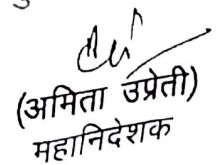 (अमिता उप्रेती)
महानिदेशक